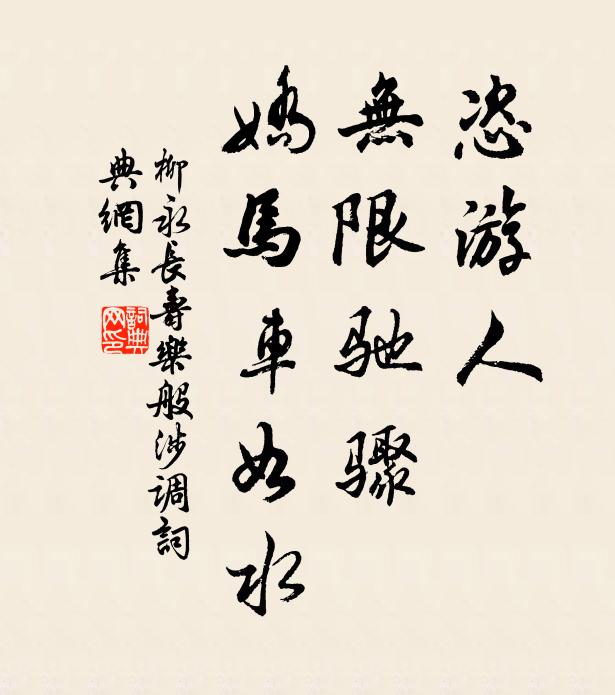 恣游人
無限驰骤
嬌馬車如水
柳永長壽樂般涉调詞
典網集
詞典网印